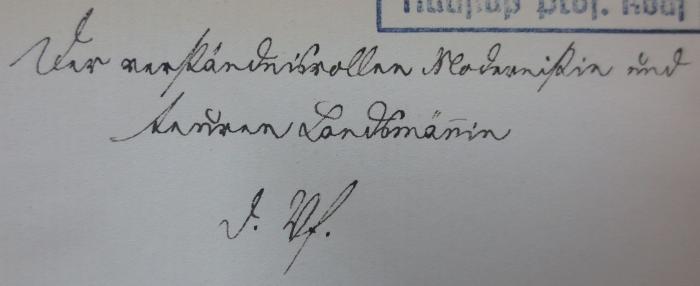 Der verständnisvollen Modernistin und
teuren Landsmännin
d. Vf.